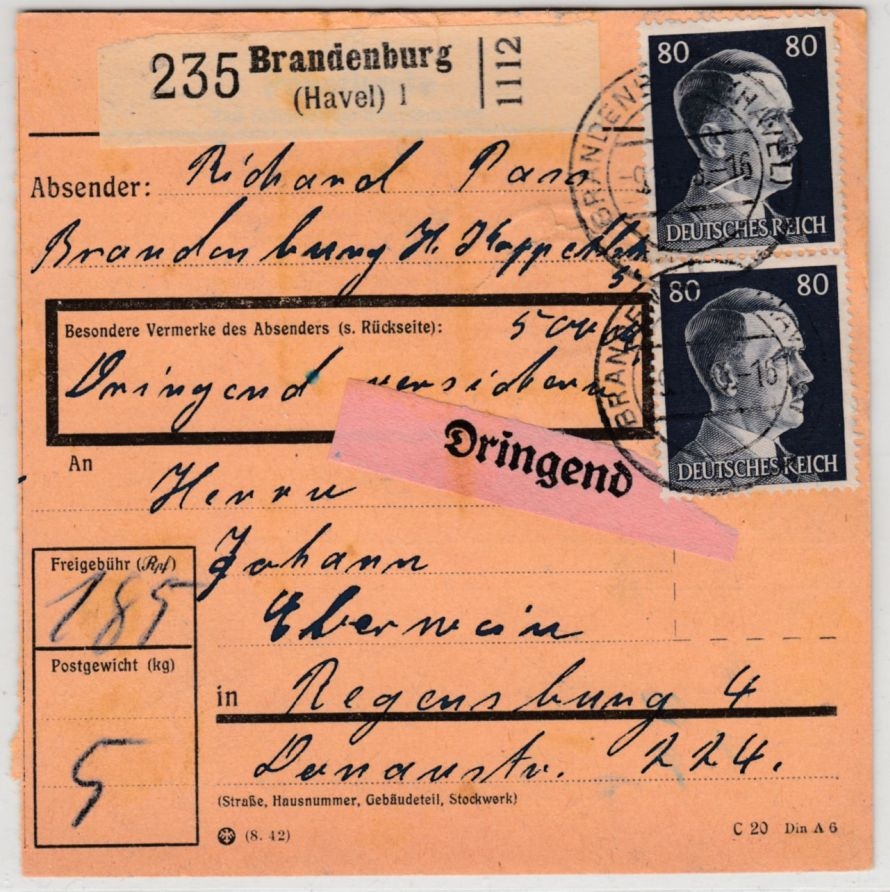 235 Brandenburg
(Havel) 1
1112
80 80
DEUTSCHES REICH
80 80
DEUTSCHES REICH
Absender: Richard
Brandenburg H.
Besondere Vermerke des Absenders (s. Rückseite):
Dringend
Dringend
An
Herrn
Johann
Eberwein
in Regensburg 4
Donaustr. 224.
(Straße, Hausnummer, Gebäudeteil, Stockwerk)
Freigebühr (Rpf)
185
Postgewicht (kg)
5
(8. 42)
C 20 Din A 6